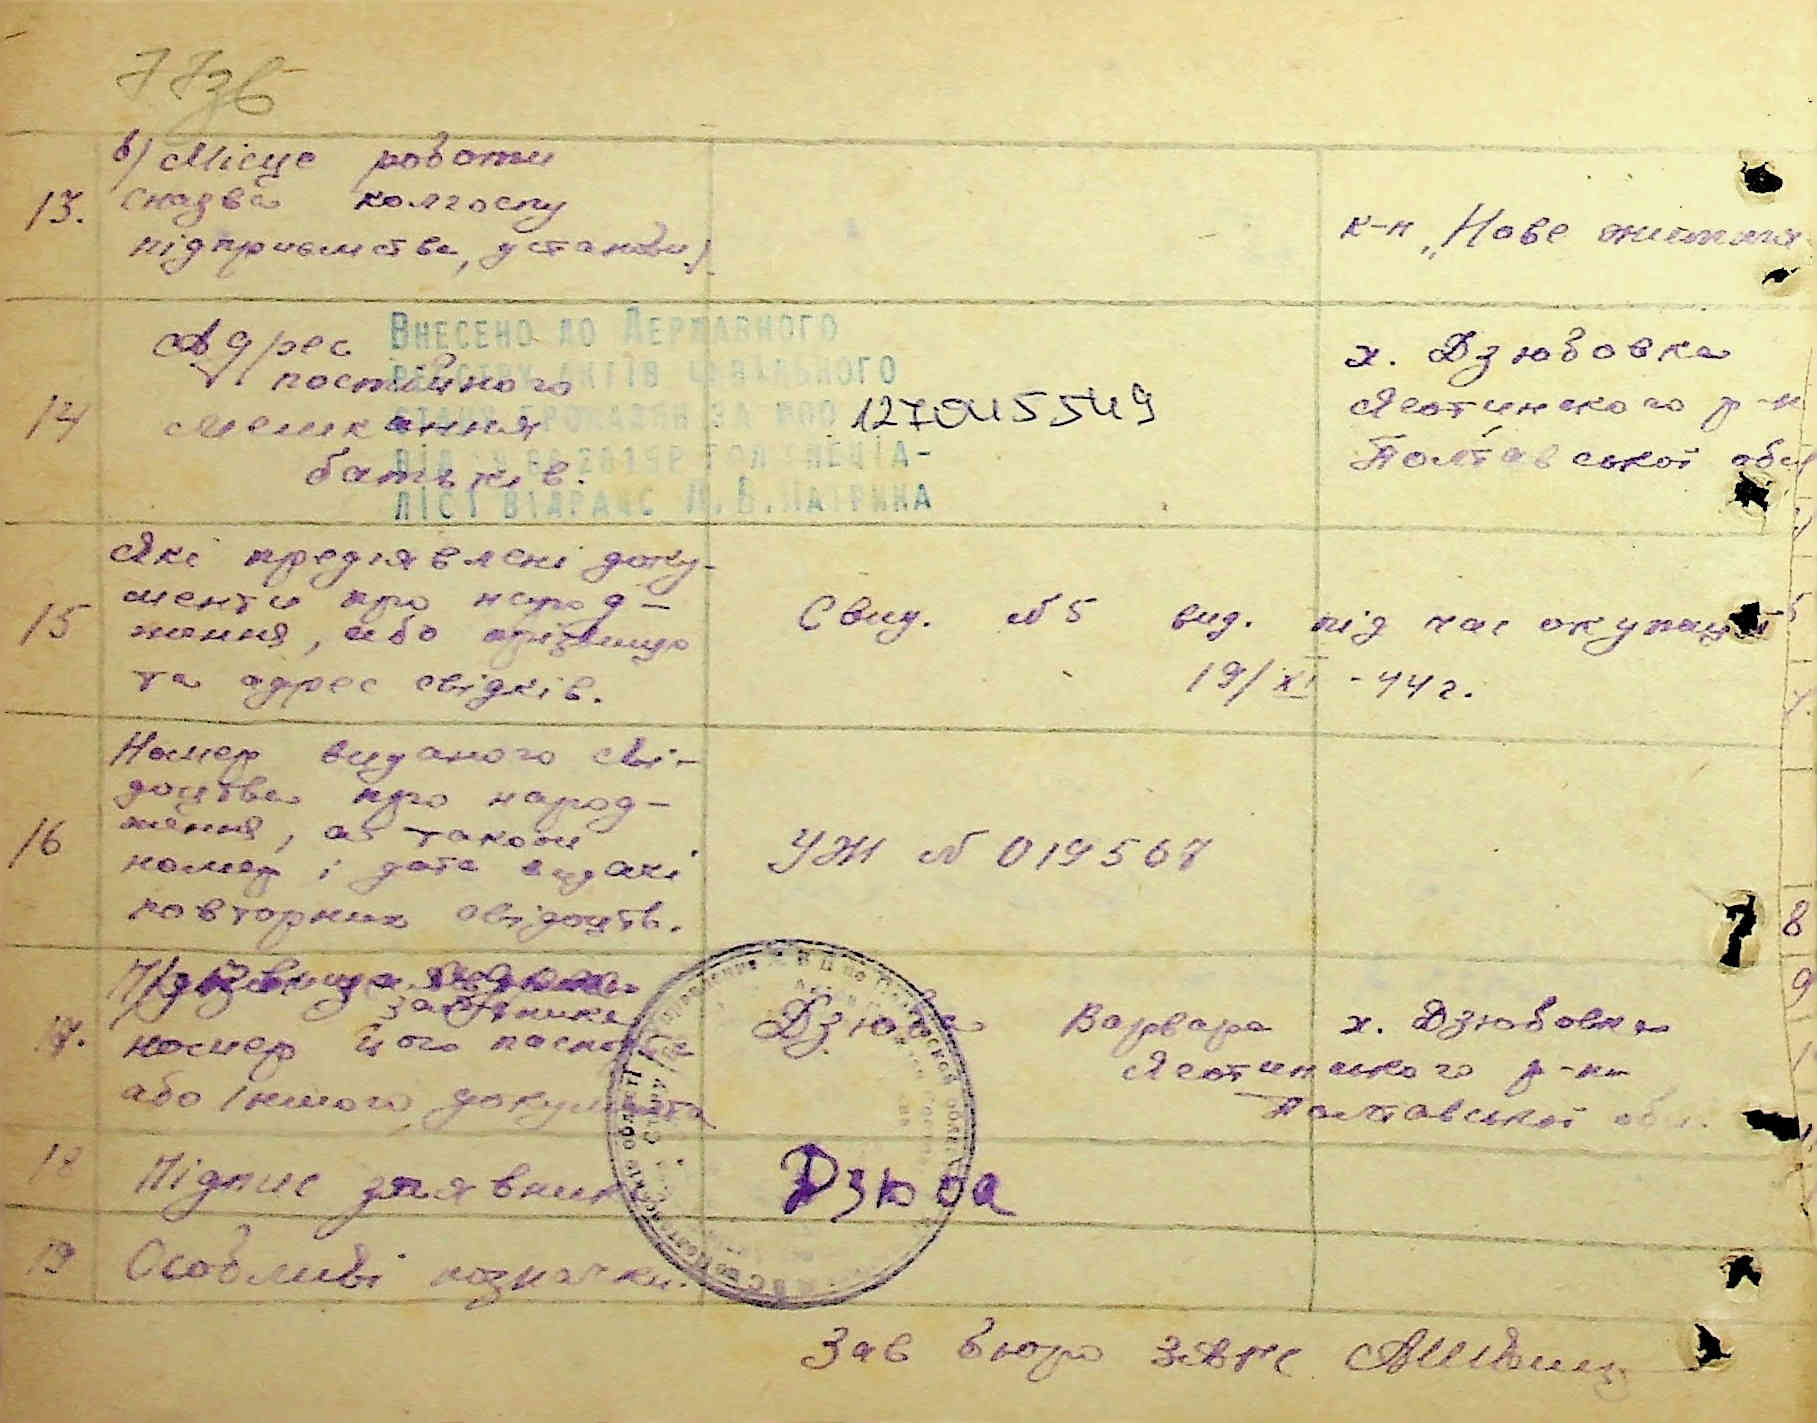 77зв
в) Місце роботи
13. (назва колгоспу
підприємства, установи).
к-п „Нове життя
14 Адрес
постійного
мешкання
батьків.
Внесено до Державного
реєстру актів цивільного
стану громадян за №00
127045549
ліст відрацс
х. Дзюбовка
Яготинского р-н
Полтавської обл
15 Які предъявлені доку-
менти про народ-
ження, або прізвище
та адрес свідків.
Свид. №5 вид. під час окупації
19/XI -44 г.
16 Номер виданого сві-
доцтва про народ-
ження, а також
номер і дата видачі
повторних свідоцтв.
УЖ № 019567
17. заявника
номер його паспорта
або іншого документа
Дзюба Варвара х. Дзюбовка
Яготинського р-н
Полтавської обл.
18 Підпис заявник
Дзюба
19 Особливі позначки.
Зав бюро ЗАГС
8
9